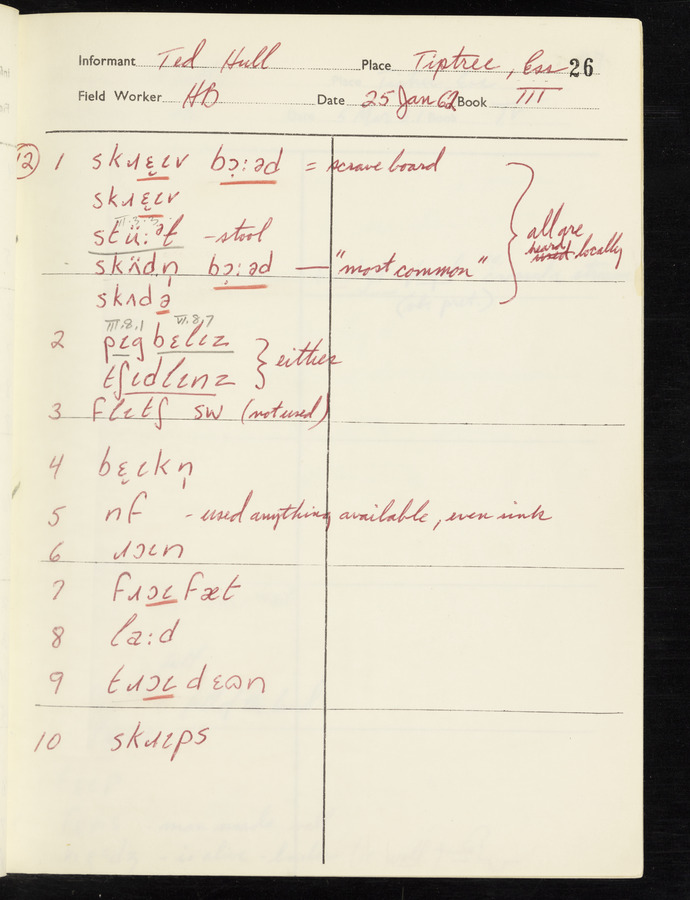 Informant Ted Hull Place Tiptree, Ess 26
Field Worker HB Date 25 Jan 62 Book III
12 1 skɹɛ̣ɩv bɔ̣:əd = scrave board
skɹɛ̣ɩv
III.3.3
stü:ᵊɫ - stool
skʌ̈dn̩ bɔ̣:əd — "most common"
skʌdə
} all are heard used locally
III.8.1 VI.8,7
2 pɩg bɛlɩz
tʃɩdlɩnz
} either
3 flɩtʃ sw (not used)
4 bɛ̣ɩkn̩
5 nf - used anything available, even sink
6 ɹɔɩn
7 fɹɔɩ fæt
8 la:d
9 tɹɔɩ dɛɷn
10 skɹɩps